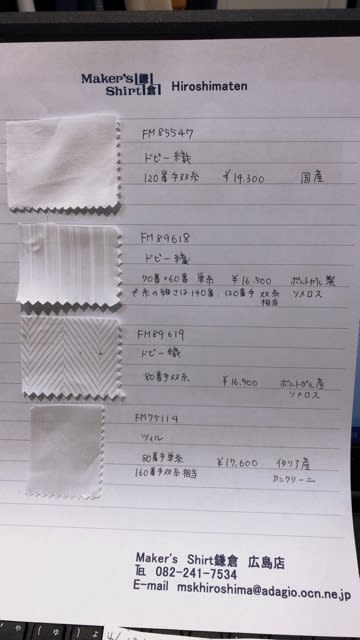 Maker's Shirt 鎌倉 Hiroshimaten
FM85547
ドビー織
120番手双糸 ¥14.300 国産
FM89618
ドビー織
70番×60番 単糸 ¥16.500 ポルトガル製
*糸の細さは140番, 120番手双糸相当 ソメロス
FM89619
ドビー織
80番手双糸 ¥16.500 ポルトガル産
ソメロス
FM75114
ツイル
80番手単糸 ¥17.600 イタリア産
160番手双糸相当 カンクリーニ
Maker's Shirt鎌倉 広島店
℡ 082-241-7534
E-mail mskhiroshima@adagio.ocn.ne.jp
ゃ ゅ ょ